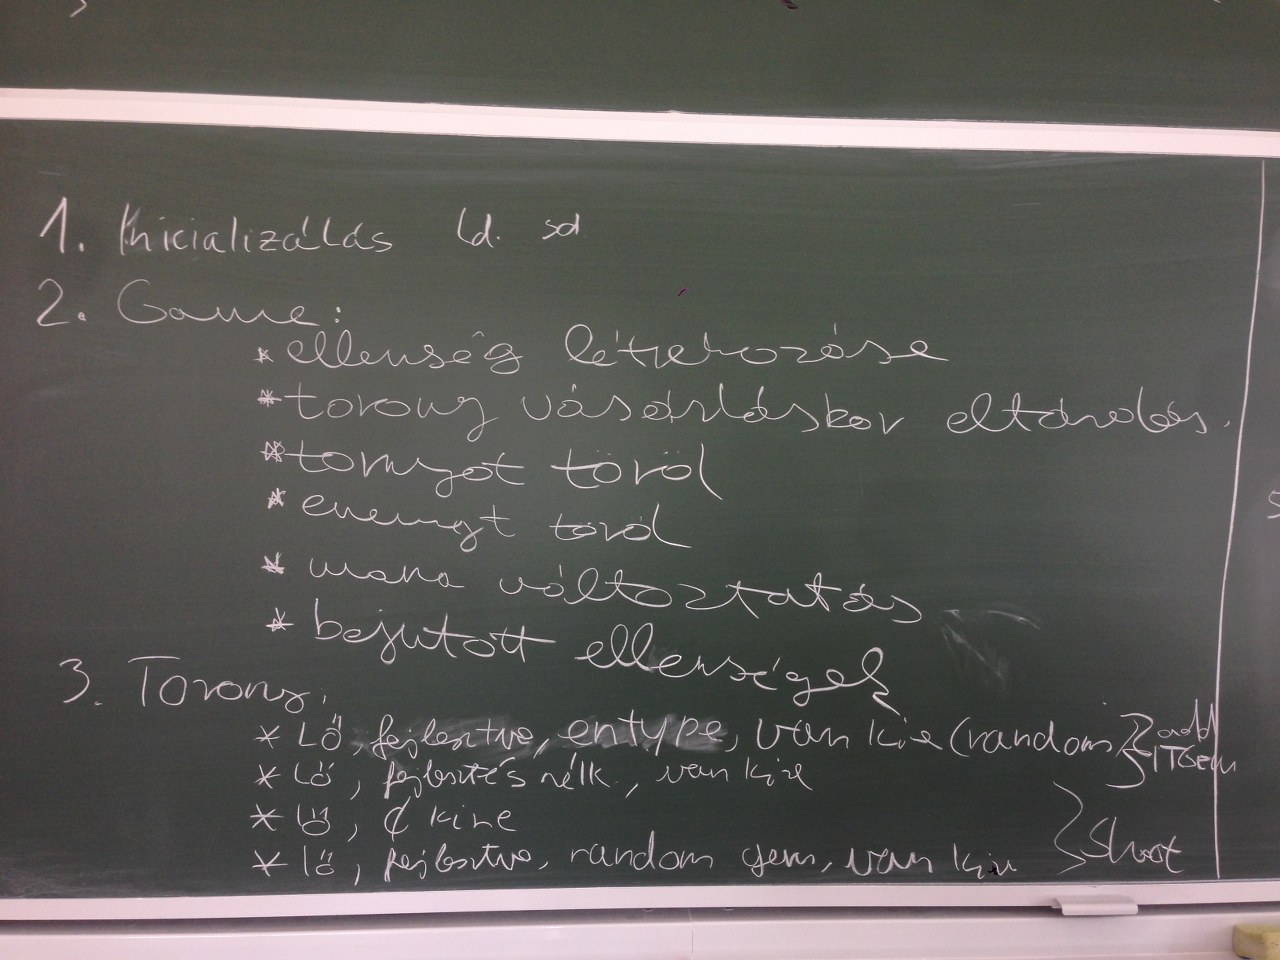 1. Inicializálás ld. sd
2. Game:
* ellenség létrehozása
* torony vásárláskor eltárolás.
* tornyot töröl
* enemyt töröl
* mana változtatás
* bejutott ellenségek
3. Torony.
* Lő, fejlesztve, entype, van kire (random) } add
* Lő, fejlesztés nélk., van kire
* lő, ¢ kire
* lő, fejlesztve, random gem, van kire } Shoot